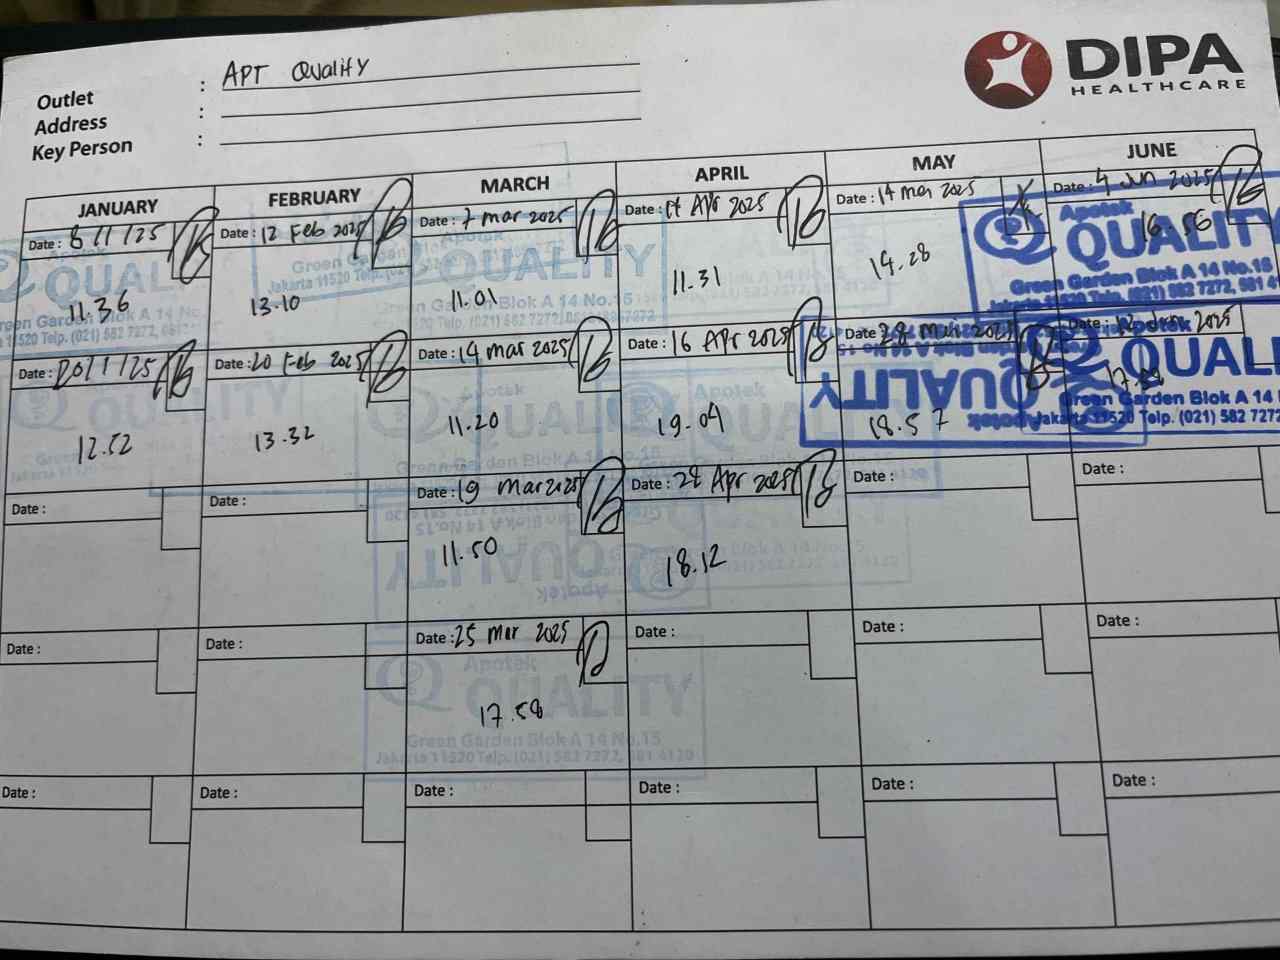 DIPA
HEALTHCARE
Outlet : APT Quality
Address :
Key Person :
JANUARY
Date : 8/1/25
11.36
Date : 20/1/25
12.52
Date :
Date :
Date :
FEBRUARY
Date : 12 Feb 2025
13.10
Date : 20 Feb 2025
13.32
Date :
Date :
Date :
MARCH
Date : 7 mar 2025
11.01
Date : 14 mar 2025
11.20
Date : 19 mar 2025
11.50
Date : 25 mar 2025
17.58
Date :
APRIL
Date : Apr 2025
11.31
Date : 16 Apr 2025
19.04
Date : Apr 2025
18.12
Date :
Date :
MAY
Date : 14 mei 2025
14.28
Date : 28 mei 2025
18.57
Date :
Date :
Date :
JUNE
Date : 4 Jun 2025
16.56
Date : Jun 2025
Date :
Date :
Date :
Apotek
QUALITY
Green Garden Blok A 14 No.15
Jakarta 11520 Telp. (021) 582 7272, 581 4120
Apotek
QUALITY
Green Garden Blok A 14 No.
Jakarta 11520 Telp. (021) 582 7272